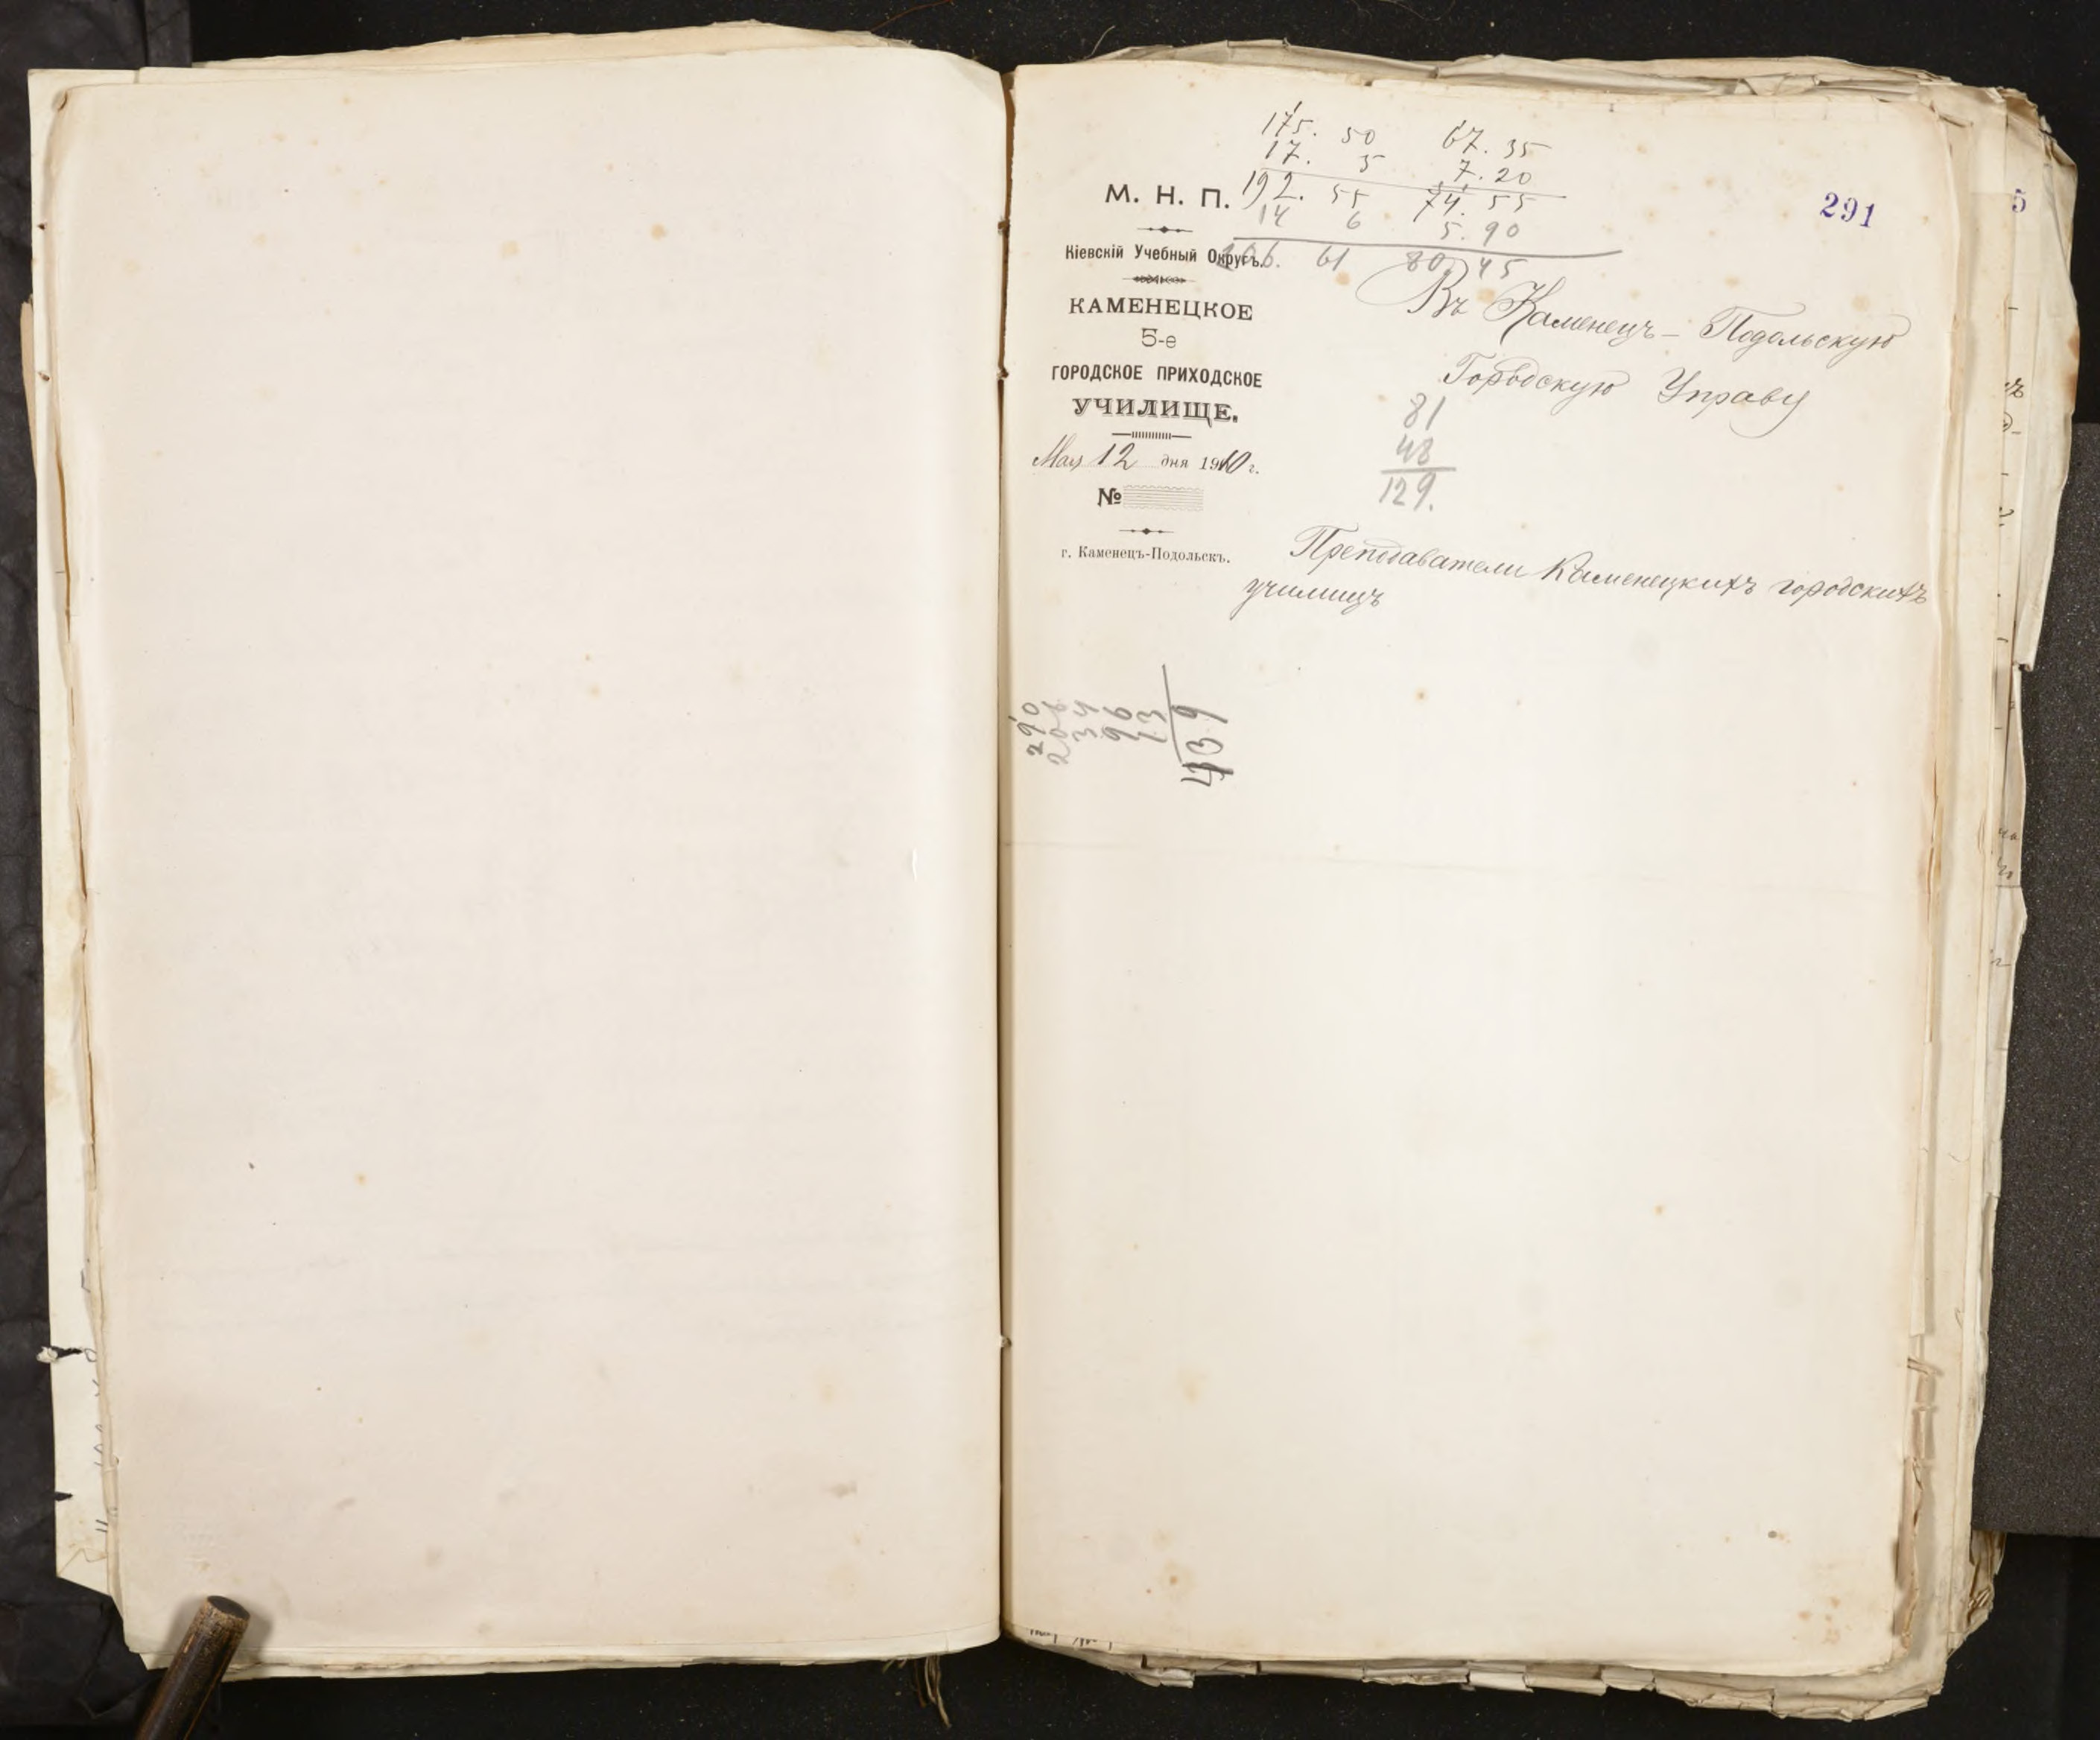 175. 50 67. 35
17. 5 7. 20
192. 55 74. 55
14 6 5. 90
206. 61 80 45
291
М. Н. П.
Кіевскій Учебный Округъ.
КАМЕНЕЦКОЕ
5-е
ГОРОДСКОЕ ПРИХОДСКОЕ
УЧИЛИЩЕ.
Мая 12 дня 1910 г.
№
г. Каменецъ-Подольскъ.
Въ Каменецъ-Подольскую
Городскую Управу
81
48
129.
Преподаватели Каменецкихъ городскихъ
училищъ
290
206
34
96
13
439
5